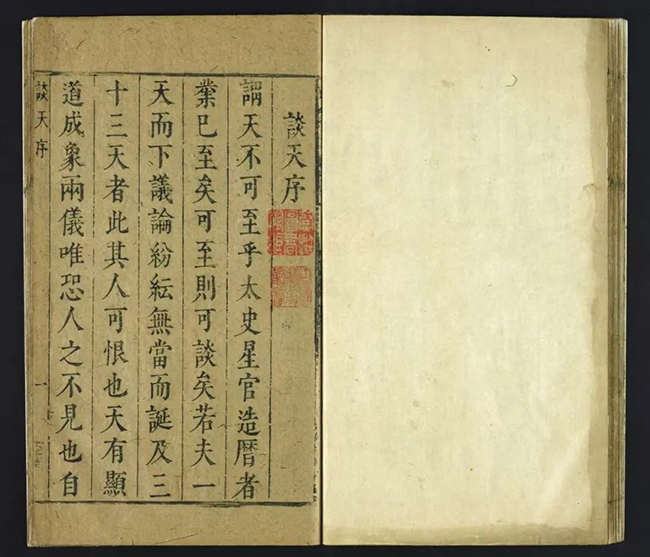 談天序
謂天不可至乎太史星官造曆者
業已至矣可至則可談矣若夫一
天而下議論紛紜無當而誕及三
十三天者此其人可恨也天有顯
道成象兩儀唯恐人之不見也自
談天序
一